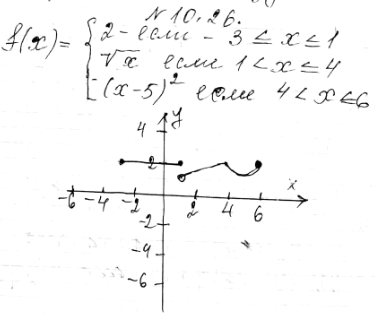 N 10.26.
f(x) = { 2 - если - 3 ≤ x ≤ 1
√x если 1 < x ≤ 4
(x-5)² если 4 < x ≤ 6
y
4
2
x
-6 -4 -2 2 4 6
-2
-4
-6